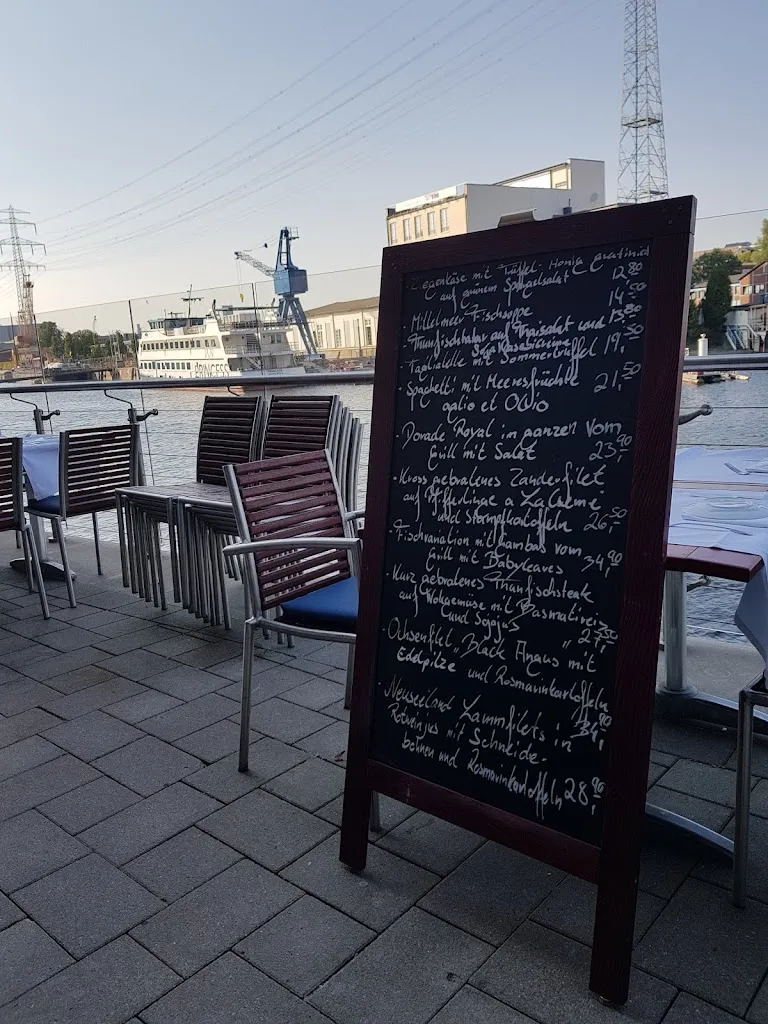 Ziegenkäse mit Trüffel-Honig gratiniert
auf grünem Spargelsalat 12,80
· Mittelmeer Fischsuppe 14,50
· Thunfischtatar auf Maissalat und
Soja Wasabicreme
· Tagliatelle mit Sommertrüffel 19,50
· Spaghetti mit Meeresfrüchte
aglio et Olio 21,50
· Dorade Royal im ganzen vom
Grill mit Salat 23,90
· Kross gebratenes Zanderfilet
auf Pfifferlinge a La Creme
und Stampfkartoffeln 26,50
· Fischvariation mit Gambas vom
Grill mit Babyleaves 34,90
· Kurz gebratenes Thunfischsteak
auf Wokgemüse mit Basmatireis
und Sojajus
· Ochsenfilet "Black Angus" mit
Edelpilze und Rosmarinkartoffeln
34,90
· Neuseeland Lammfilets in
Rotweinjus mit Schneide-
bohnen und Rosmarinkartoffeln 28,90
PRINCESS